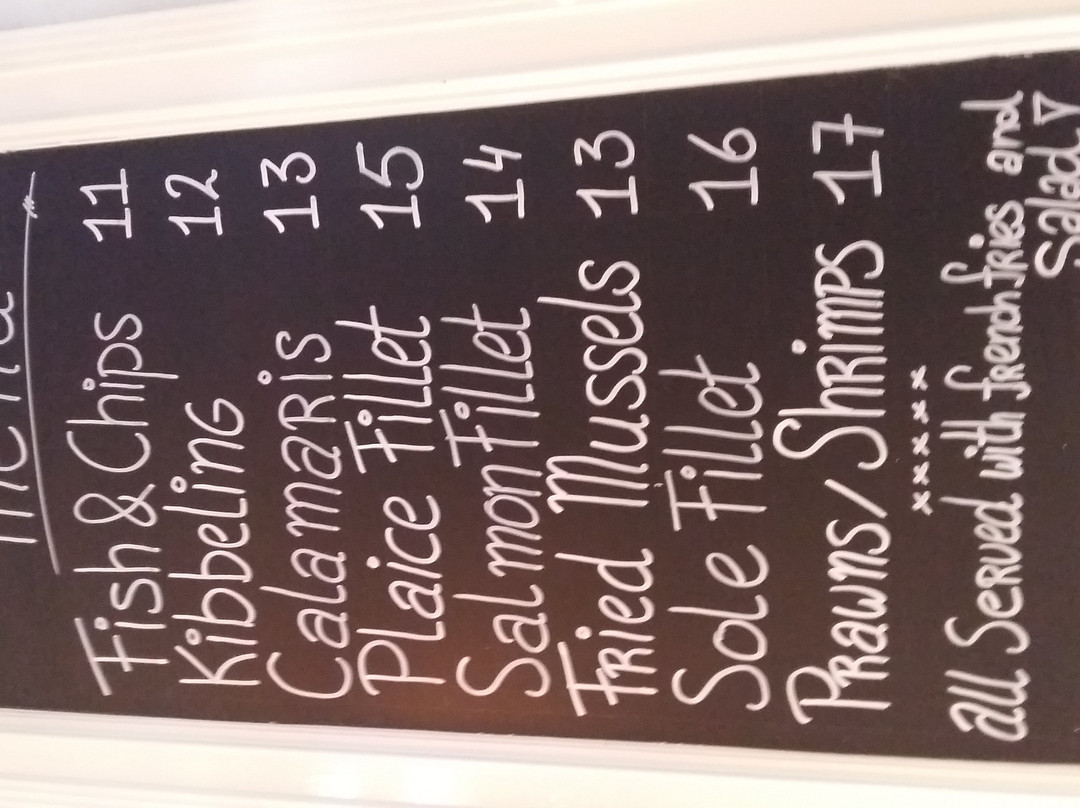 Fish & Chips 11
Kibbeling 12
Calamaris 13
Plaice Fillet 15
Salmon Fillet 14
Fried Mussels 13
Sole Fillet 16
Prawns/Shrimps 17
xxxxx
all Served with french fries and
Salad